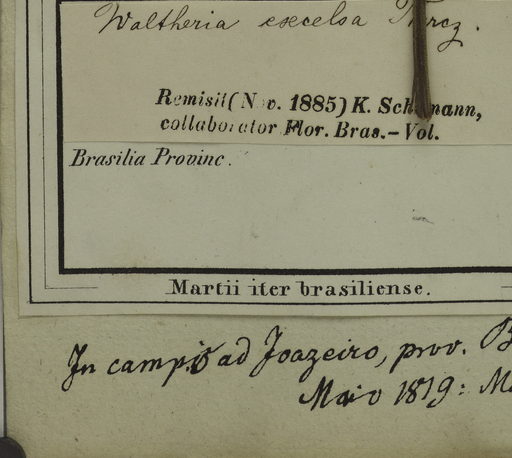 Waltheria excelsa Turcz.
Remisit (Nov. 1885) K. Schumann,
collaborator Flor. Bras. – Vol.
Brasilia Provinc.
Martii iter brasiliense.
In campis ad Joazeiro, prov. B
Maio 1819: M